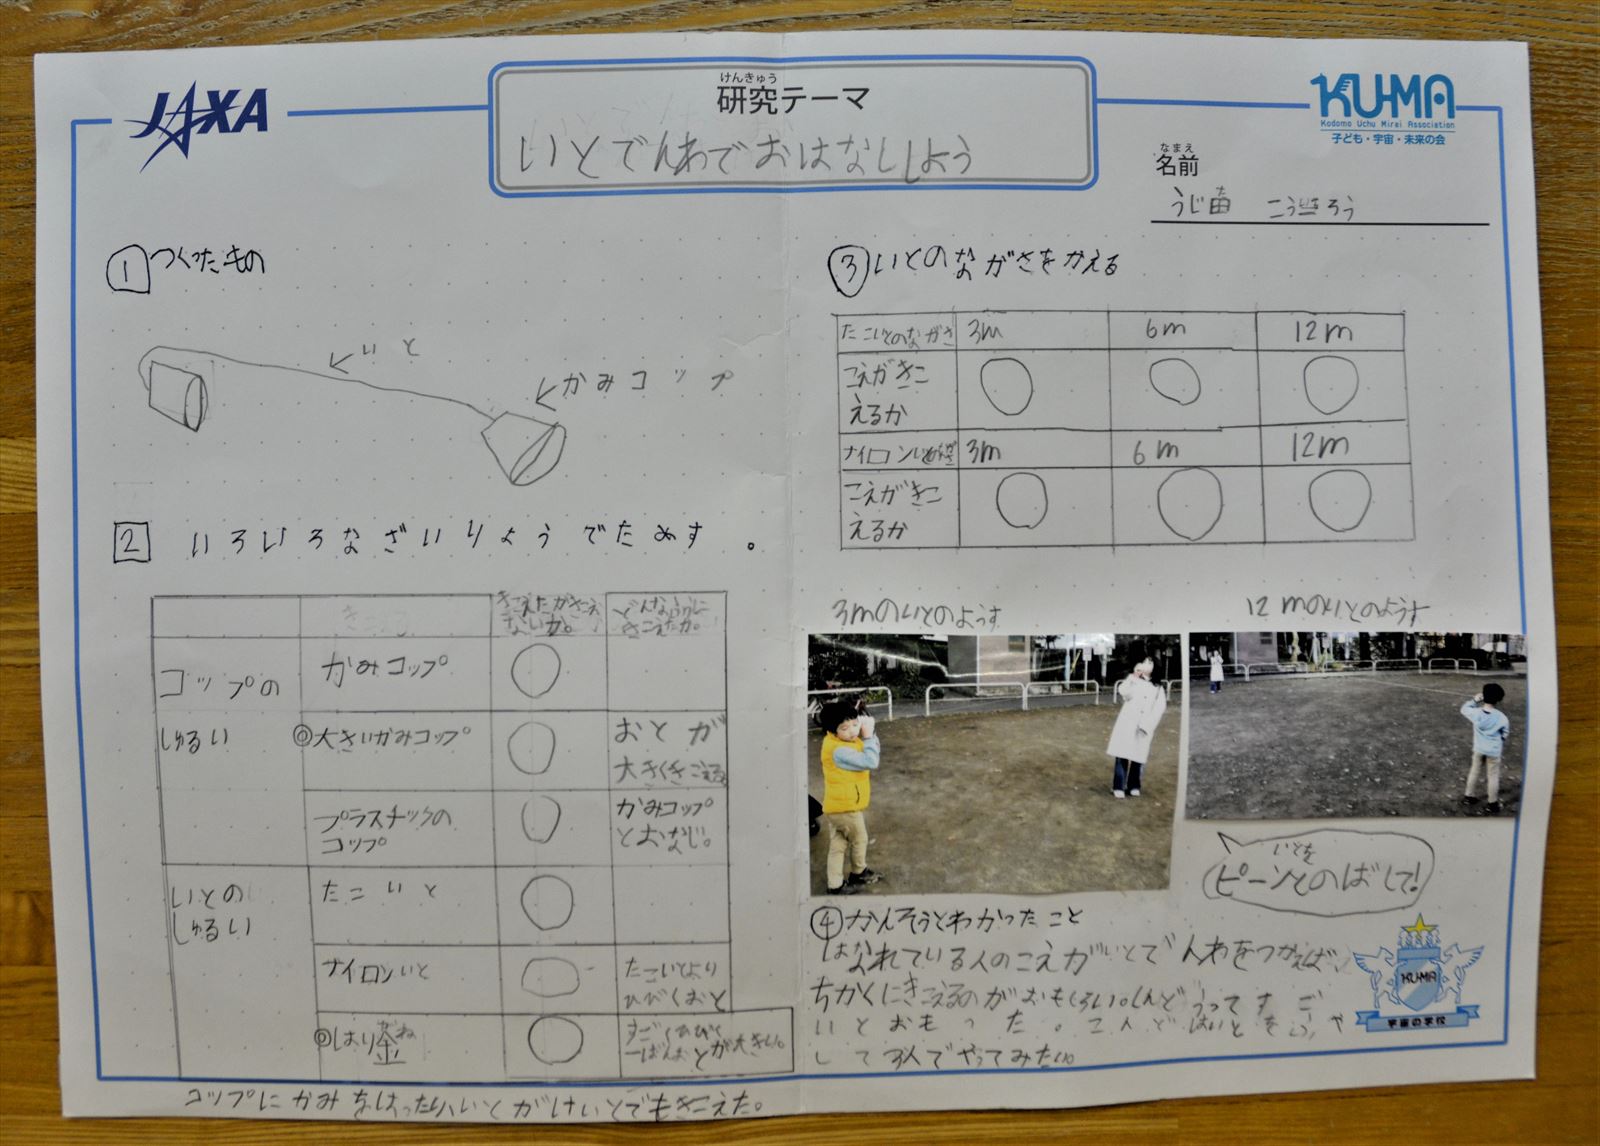 JAXA
けんきゅう
研究テーマ
いとでんわでおはなししよう
KU-MA
Kodomo Uchu Mirai Association
子ども・宇宙・未来の会
なまえ
名前
1 つくったもの
いと
かみコップ
2 いろいろなざいりょうでためす。
きこえたかきこえ
ないか。
どんなふうに
きこえたか。
コップの
しゅるい
かみコップ
◎大きいかみコップ
おとが
大きくきこえる。
プラスチックの
コップ
かみコップ
とおなじ。
いとの
しゅるい
たこいと
ナイロンいと
たこいとより
ひびくおと
◎はり金
がね
すごくひびく
一ばんおとが大きい。
3 いとのながさをかえる
たこいとのながさ 3m 6m 12m
こえがきこ
えるか
ナイロンいとのながさ 3m 6m 12m
こえがきこ
えるか
3mのいとのようす
12mのいとのようす
いとを
ピーンとのばして!
4 かんそうとわかったこと
はなれている人のこえがいとでんわをつかえば、
ちかくにきこえるのがおもしろい。しんどうってすご
いとおもった。こんどはいとをふや
して3人でやってみたい。
KU-MA
宇宙の学校